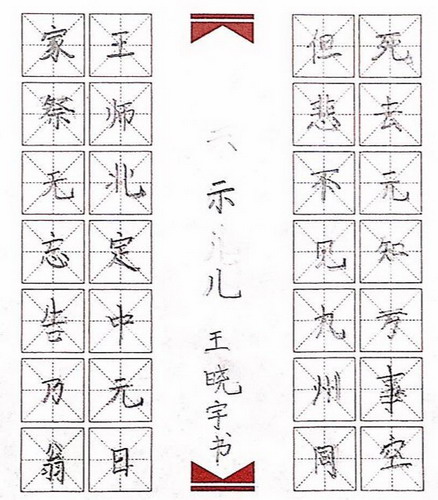 死去元知亏事空
但悲不见九州同
示儿
王晓宇书
王师北定中元日
家祭无忘告乃翁